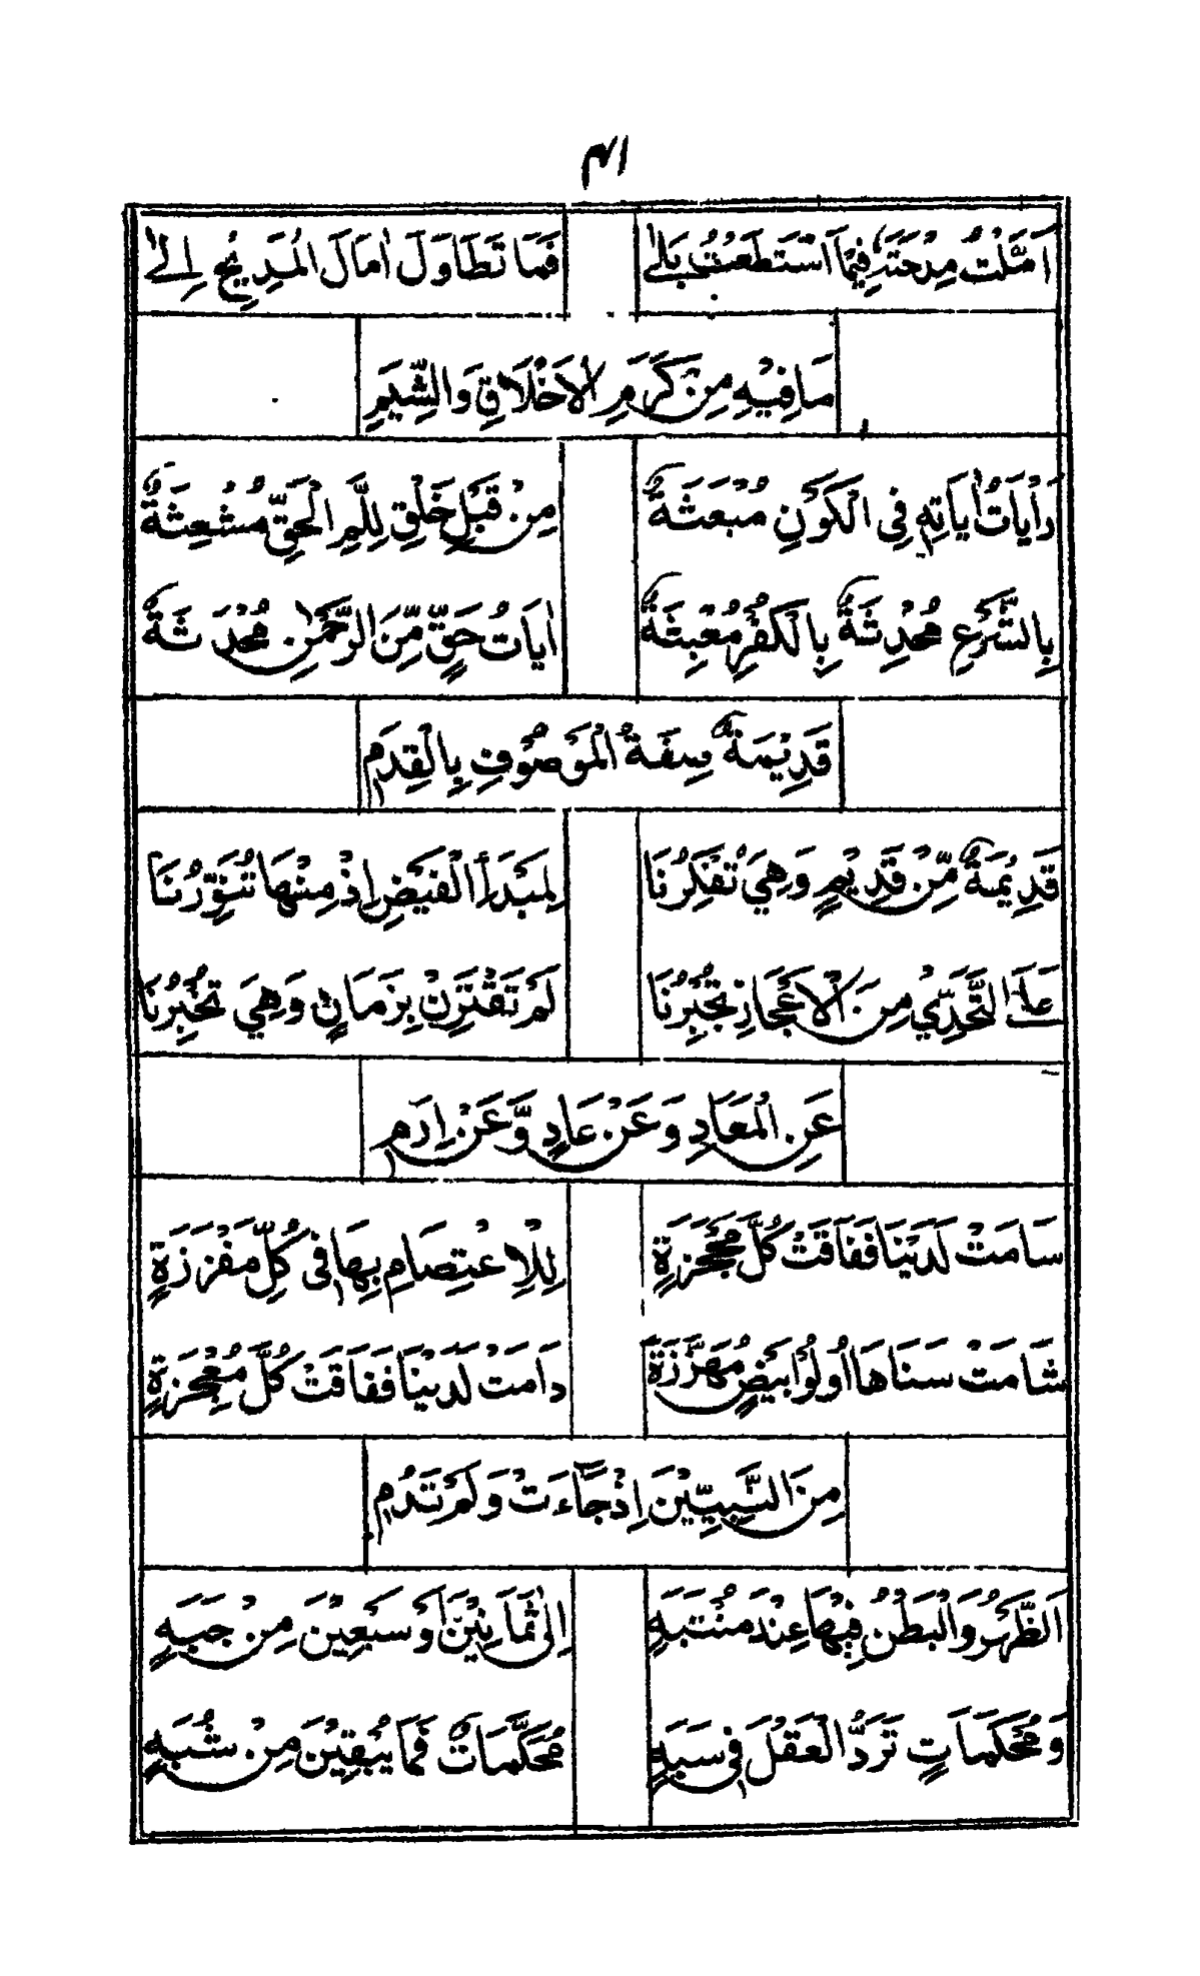 ۴۱
اَمَّلْتُ مِدْحَتَهٗ فِيْمَا اسْتَطَعْتُ بَلٰى فَمَا تَطَاوَلَ اٰمَالَ الْمَدِيْحِ اِلٰى
مَا فِيْهِ مِنْ كَرَمِ الْاَخْلَاقِ وَالشِّيَمِ
رَاٰيَاتُ اٰيَاتِهٖ فِى الْكَوْنِ مُبْعَثَةٌ مِنْ قَبْلِ خَلْقٍ لِلَمِّ الْحَقِّ مُشْعِثَةٌ
بِالشَّرْعِ مُحْدِثَةٌ بِالْكُفْرِ مُعْبِثَةٌ اٰيَاتُ حَقٍّ مِّنَ الرَّحْمٰنِ مُحْدَثَةٌ
قَدِيْمَةٌ صِفَةُ الْمَوْصُوْفِ بِالْقِدَمِ
قَدِيْمَةٌ مِّنْ قَدِيْمٍ وَهِيَ تُفَكِّرُنَا لِمَبْدَأِ الْفَيْضِ اِذْ مِنْهَا تُنَوِّرُنَا
عَلَى التَّحَدِّيْ مِنَ الْاِعْجَازِ تُجْبِرُنَا لَمْ تَقْتَرِنْ بِزَمَانٍ وَهِيَ تُخْبِرُنَا
عَنِ الْمَعَادِ وَعَنْ عَادٍ وَّعَنْ اِرَمِ
سَامَتْ لَدَيْنَا فَفَاقَتْ كُلَّ مَحْجَزَةٍ لِلْاِعْتِصَامِ بِهَا فِى كُلِّ مَفْرَزَةٍ
شَامَتْ سَنَاهَا اُولُوْا بِيْضٍ مُهَرَّزَةٍ دَامَتْ لَدَيْنَا فَفَاقَتْ كُلَّ مُعْجِزَةٍ
مِنَ النَّبِيِّيْنَ اِذْ جَآءَتْ وَلَمْ تَدُمِ
اَلظَّهْرُ وَالْبَطْنُ فِيْهَا عِنْدَ مُنْتَبِهٍ اِلٰى ثَمَانِيْنَ اَوْ سَبْعِيْنَ مِنْ جَبَهٍ
وَمُحْكَمَاتٍ تَرَدَّ الْعَقْلَ فِى سَبَهٍ مُحَكَّمَاتٌ فَمَا يُبْقِيْنَ مِنْ شُبَهٍ